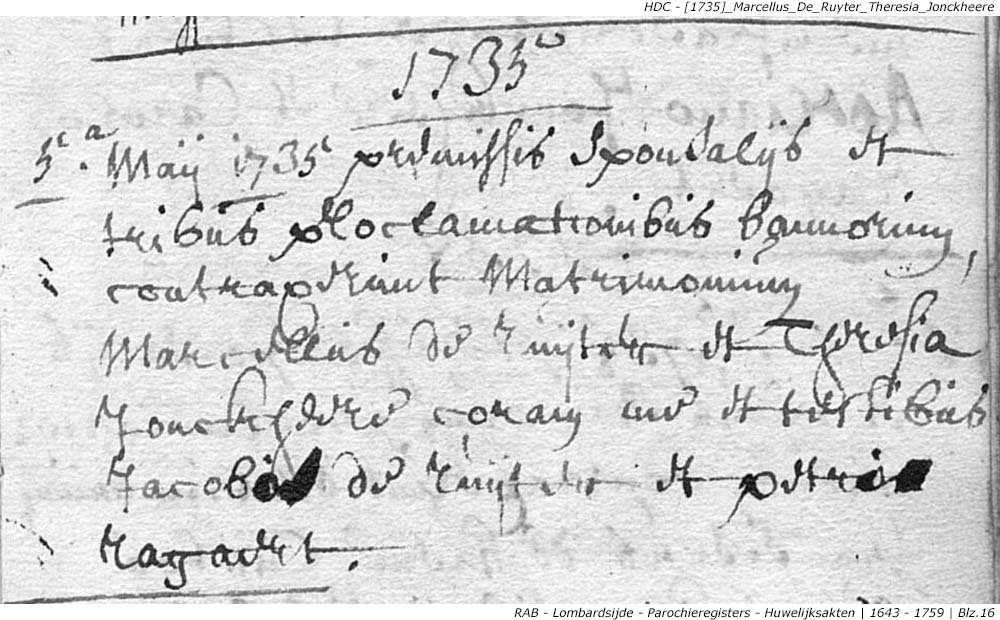 HDC - [1735]_Marcellus_De_Ruyter_Theresia_Jonckheere
1735
5ta Maij 1735 premissis sponsalijs et
tribus proclamationibus bannorum,
contraxerunt Matrimonium
Marcellus de ruijter et Theresia
Jonckheere coram me et testibus
Jacobo de ruijter et petro
ragaert.
RAB - Lombardsijde - Parochieregisters - Huwelijksakten | 1643 - 1759 | Blz.16